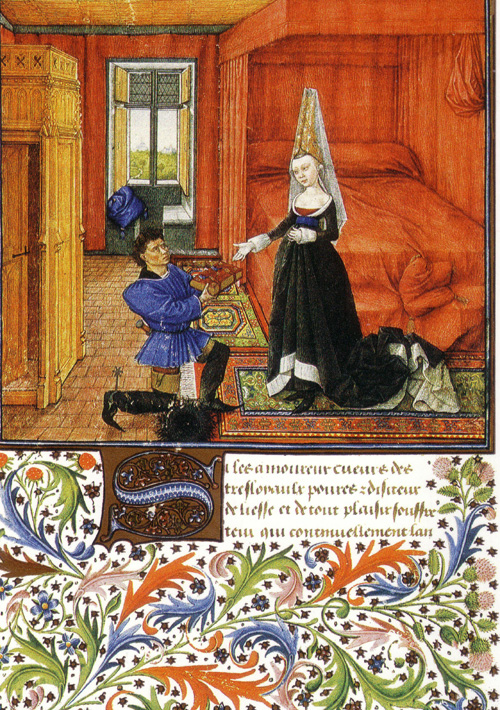 Si les amoureux cueurs des
tresloyaulx poures z disiteux
de liesse et de tout plaisir souffre
teux qui contmuellement lan